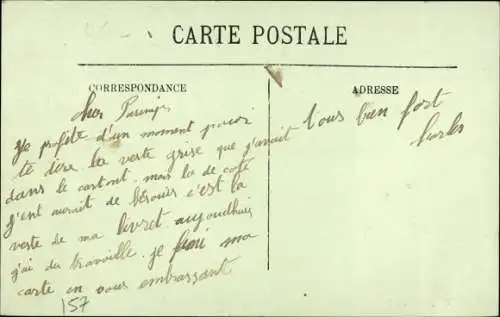 CARTE POSTALE
CORRESPONDANCE
ADRESSE
cher
Je profite d'un moment pour
te dire la veste grise que j'avait
dans le cartont. mais la de coté
j'ent aurait de besoins c'est la
veste de ma livret. aujoudhui
j'ai du travaille. je fini ma
carte en vous embrassant
tous bien fort
157